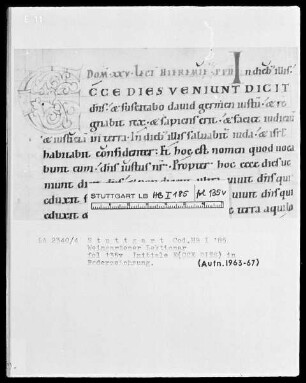 DOM. XXV. LECT HIEREMIE In dieb; illis
CCE DIES VENIUNT DICIT
dns. & suscitabo dauid germen iustū. & re
gnabit rex. & sapiens erit. & faciet iudiciū
& iusticiā in terra. In dieb; illis saluabit iuda. & isrł
habitabit confidenter. Et hoc est nomen quod uoca
bunt eum. dns iustus nr. Propter hoc ecce dies ue
niunt dicit
uiunt dns qui
eduxit
terra aquilo
STUTTGART LB HB I 185 fol 135v
LA 2340/4 Stuttgart Cod.HB I 185
Weingartener Lektionar
fol 135v Initiale E(CCE DIES) in
Federzeichnung.
(Aufn.1963-67)